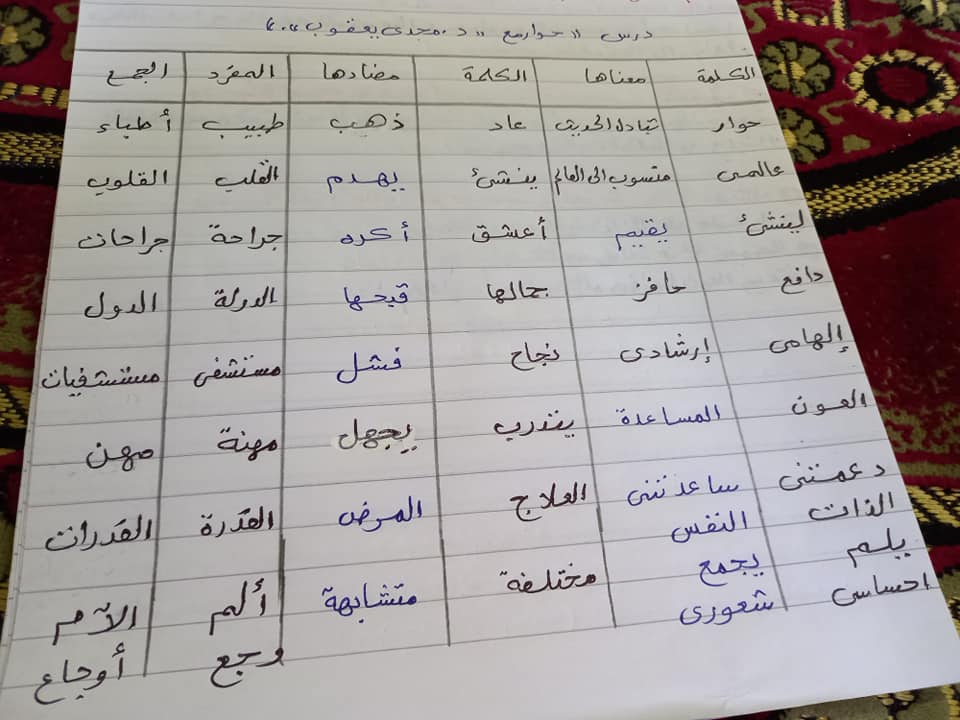 درس "حوار مع "د. مجدى يعقوب"
الكلمة معناها الكلمة مضادها المفرد الجمع
حوار تبادل الحديث عاد ذهب طبيب أطباء
عالمى منسوب الى العالم ينشئ يهدم القلب القلوب
لينشئ يقيم أعشق أكره جراحة جراحات
دافع حافز جمالها قبحها الدولة الدول
إلهامى إرشادى نجاح فشل مستشفى مستشفيات
العون المساعدة يتدرب يجهل مهنة مهن
دعمتنى ساعدتنى العلاج المرض القدرة القدرات
الذات النفس
يلم يجمع مختلفة متشابهة ألم الآم
احساسى شعورى وجع أوجاع